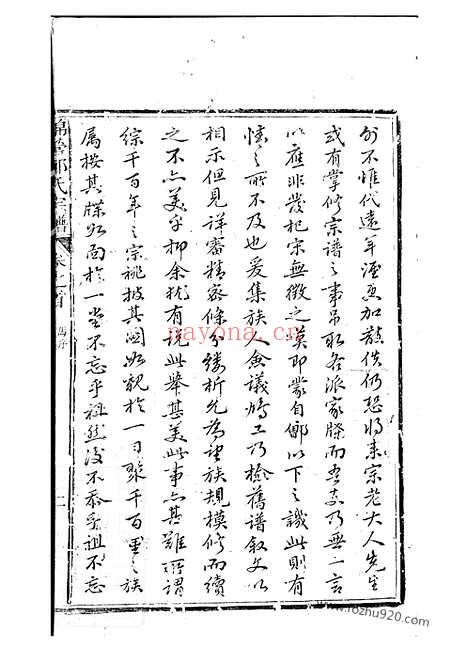 例不惟代遠年湮更加散佚仍恐將來宗老大人先生
或有掌修宗譜之事吊取各派家牒而吾支乃無一言
以應非若杞宋無徵之莫即蒙自鄶以下之譏此則有
情之所不及也爰集族人僉議鳩工乃檢舊譜敘文以
相示但見詳審精密條分縷析允為望族規模修而續
之不亦美乎抑余猶有說此舉甚美此事亦甚難所謂
綜千百年之宗祧披其圖如覩於一日聚千百里之族
屬按其牒如面於一堂不忘乎祖然後不忝乎祖不忘
氏宗譜
卷之首
舊序
二
nayona.cn
www.rozhu1920.com